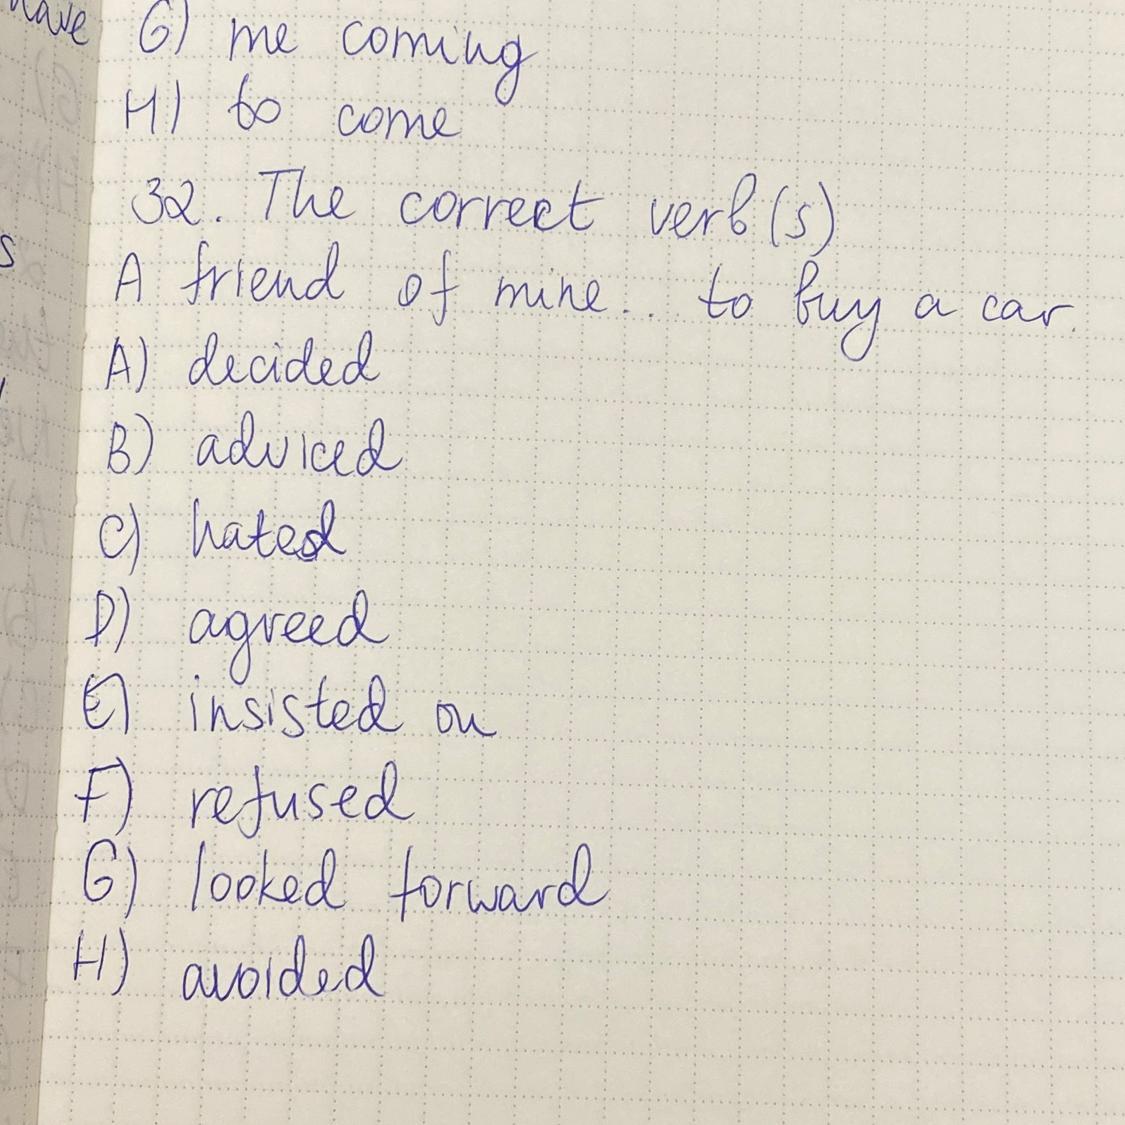 have G) me coming
H) to come
32. The correct verb(s)
A friend of mine... to buy a car.
A) decided
B) adviced
C) hated
D) agreed
E) insisted on
F) refused
G) looked forward
H) avoided